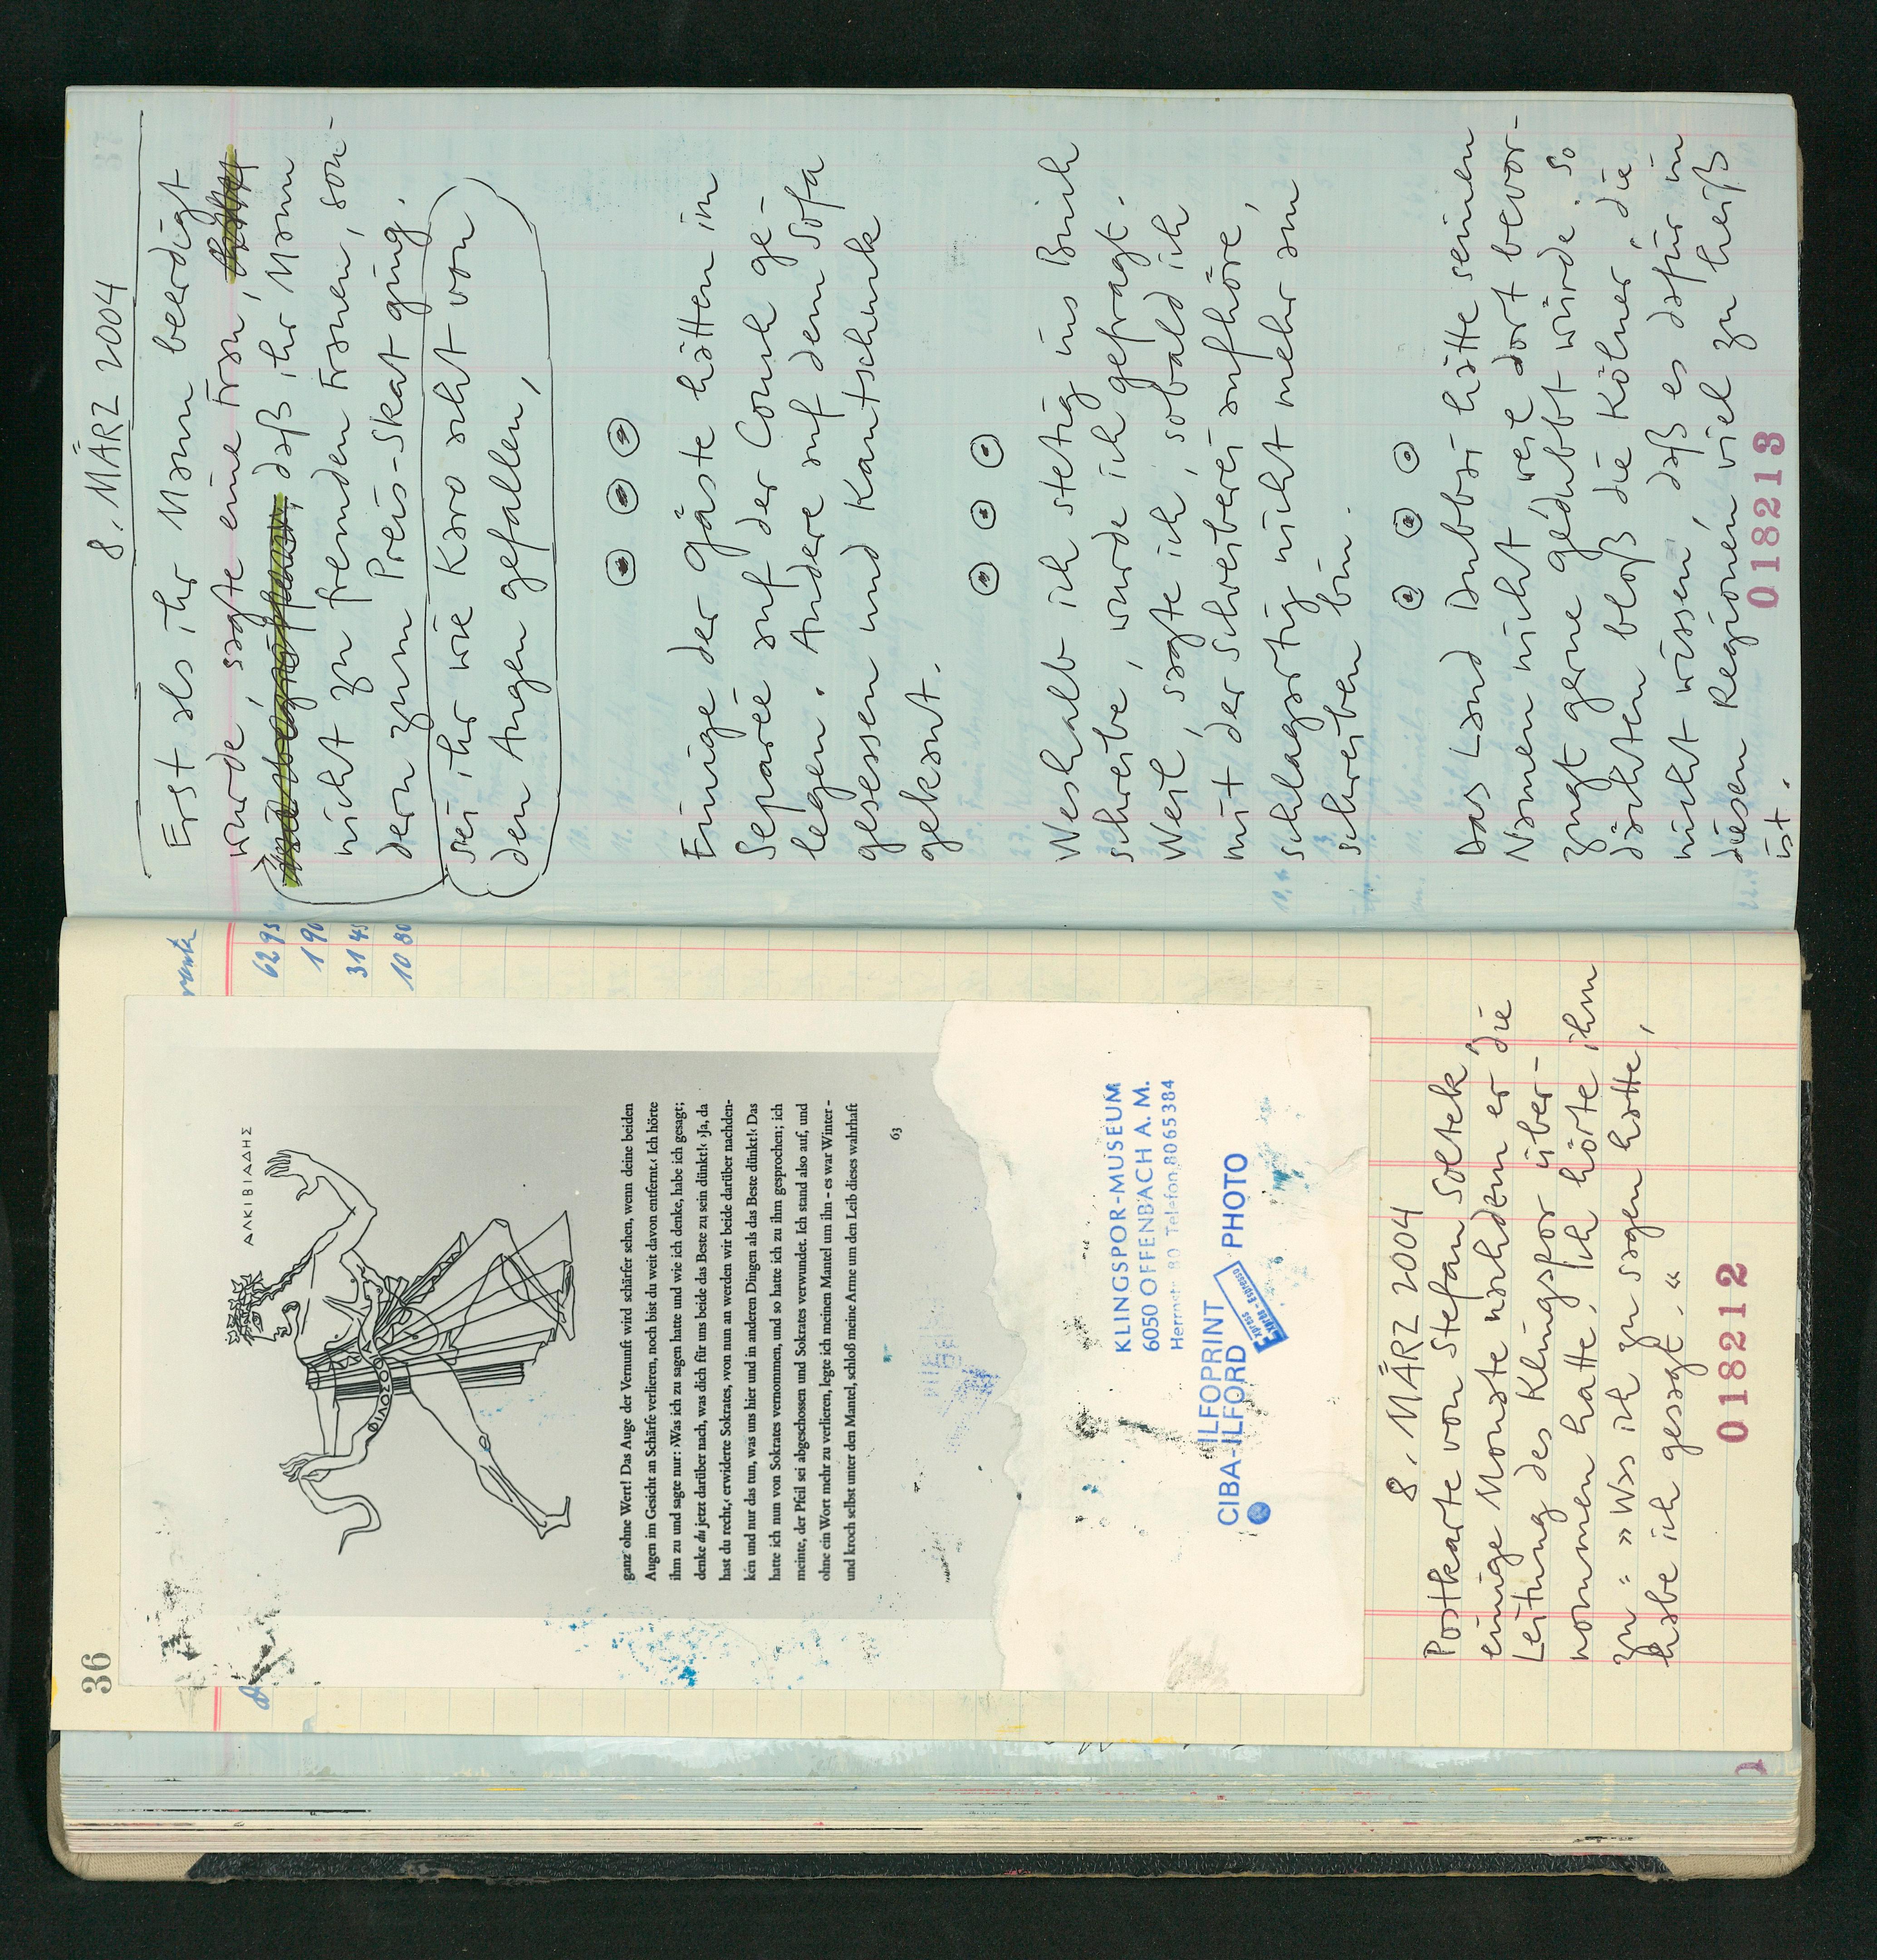 36
6295
190
3145
1080
ΑΛΚΙΒΙΑΔΗΣ
ganz ohne Wert! Das Auge der Vernunft wird schärfer sehen, wenn deine beiden
Augen im Gesicht an Schärfe verlieren, noch bist du weit davon entfernt.‹ Ich hörte
ihm zu und sagte nur: ›Was ich zu sagen hatte und wie ich denke, habe ich gesagt;
denke du jetzt darüber nach, was dich für uns beide das Beste zu sein dünkt!‹ ›Ja, da
hast du recht,‹ erwiderte Sokrates, ›von nun an werden wir beide darüber nachden-
ken und nur das tun, was uns hier und in anderen Dingen als das Beste dünkt!‹ Das
hatte ich nun von Sokrates vernommen, und so hatte ich zu ihm gesprochen; ich
meinte, der Pfeil sei abgeschossen und Sokrates verwundet. Ich stand also auf, und
ohne ein Wort mehr zu verlieren, legte ich meinen Mantel um ihn – es war Winter –
und kroch selbst unter den Mantel, schloß meine Arme um den Leib dieses wahrhaft
63
KLINGSPOR-MUSEUM
6050 OFFENBACH A. M.
Herrnstr. 80 Telefon 8065384
ILFOPRINT
CIBA-ILFORD PHOTO
8. MÄRZ 2004
Postkarte von Stefan Soltek,
einige Monate nachdem er die
Leitung des Klingspor über-
nommen hatte. „Ich hörte ihm
zu“ »Was ich zu sagen hatte,
habe ich gesagt.«
018212
8. MÄRZ 2004
Erst als ihr Mann beerdigt
wurde, sagte eine Frau,
daß ihr Mann
nicht zu fremden Frauen, son-
dern zum Preis-Skat ging.
sei ihr wie Karo acht von
den Augen gefallen,
Einige der Gäste hätten im
Separée auf der Couch ge-
legen. Andere auf dem Sofa
gesessen und Kautschuk
gekaut.
Weshalb ich stetig ins Buch
schreibe, wurde ich gefragt.
Weil, sagte ich, sobald ich
mit der Schreiberei aufhöre,
schlagartig nicht mehr am
schreiben bin.
Das Land Dubbai hätte seinen
Namen nicht, weil dort bevor-
zugt gerne gedubbt würde. So
dächten bloß die Kölner, die
nicht wissen, daß es dafür in
diesen Regionen viel zu heiß
ist.
018213